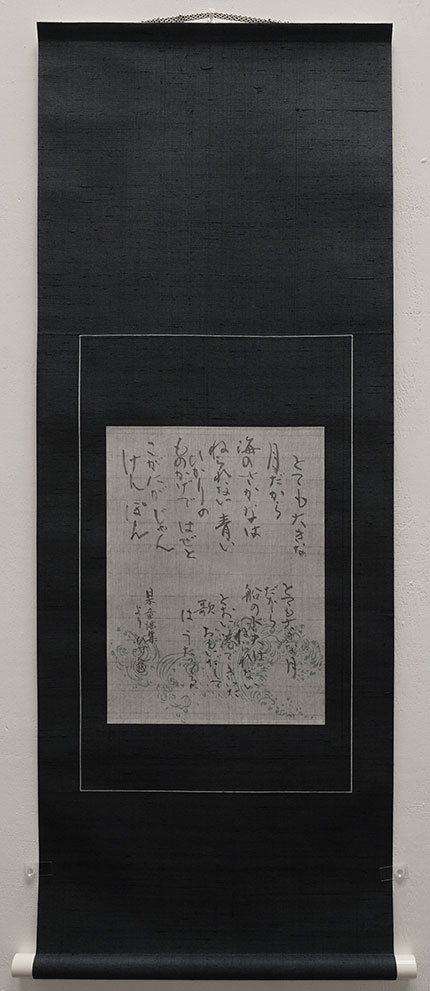 とても大きな
月だから
海のさかなは
ねられない 青い
ひかりの
ものかげで はぜと
こがにが じゃん
けん ぽん
とても大きな月
だから
船の水夫は
ねられない
とおい港できいた
歌 おもいだして
は うた